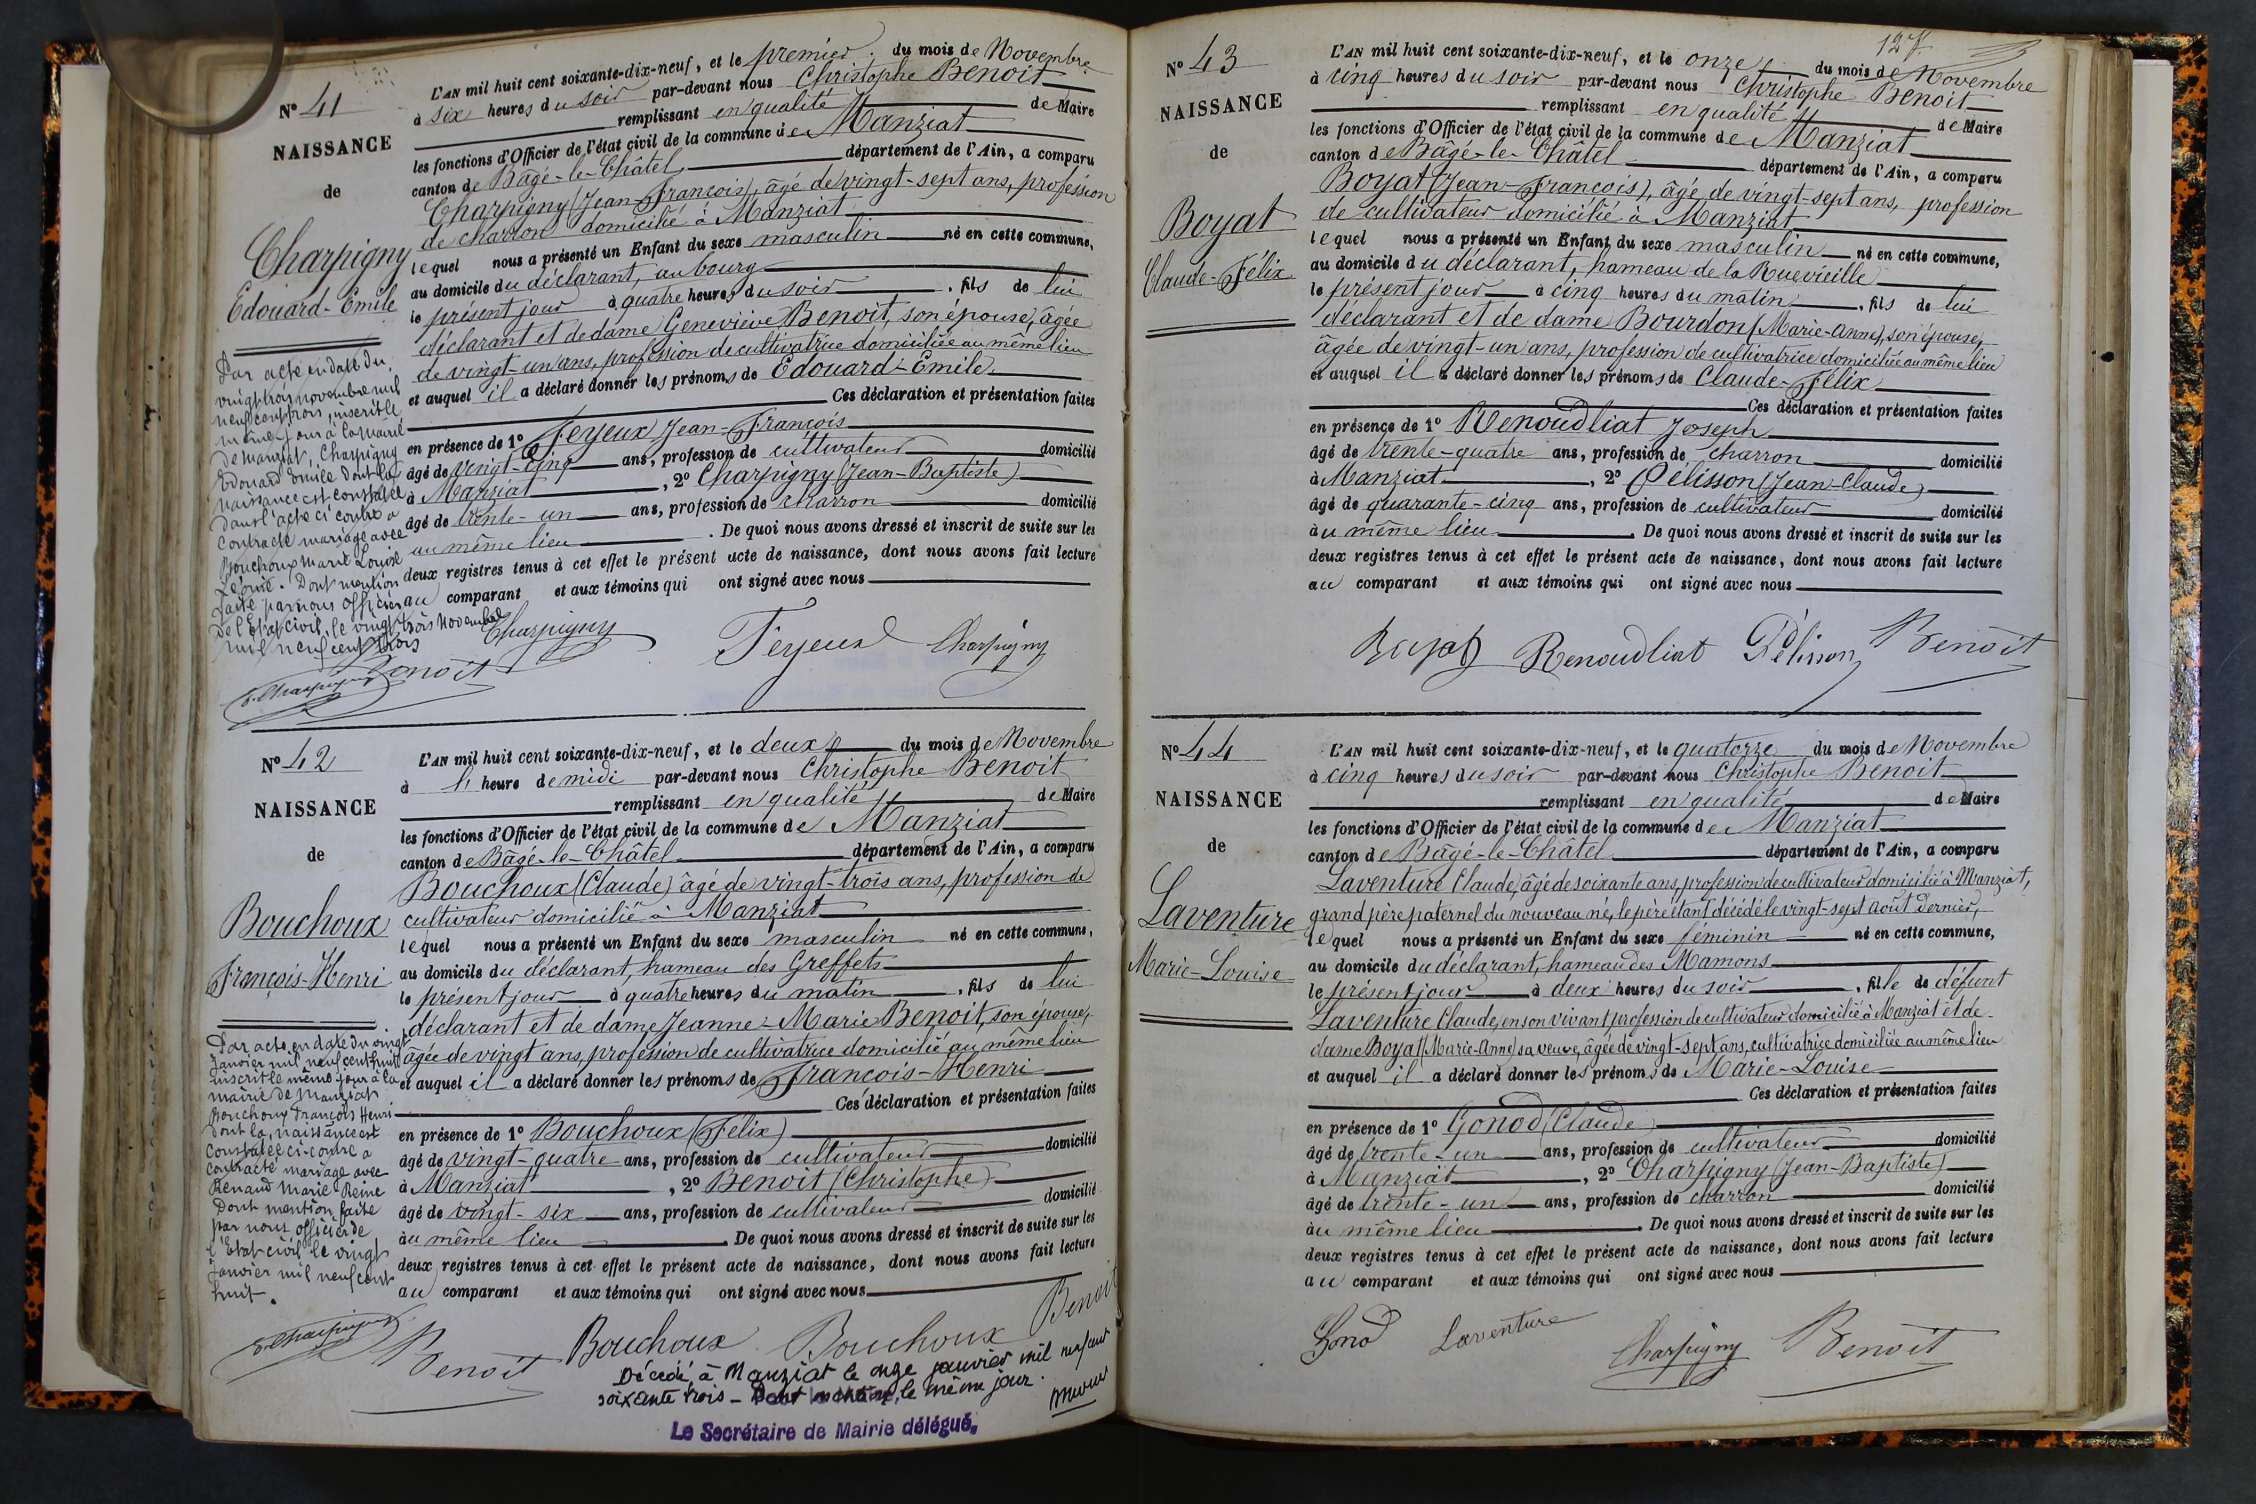 N° 41
NAISSANCE
de
Charpigny
Edouard-Emile
L'AN mil huit cent soixante-dix-neuf, et le premier du mois de Novembre
à six heures du soir par-devant nous Christophe Benoit
remplissant en qualité de Maire
les fonctions d'Officier de l'état civil de la commune de Manziat
canton de Bâgé-le-Châtel département de l'Ain, a comparu
Charpigny (Jean-François), âgé de vingt-sept ans, profession
de charron domicilié à Manziat
lequel nous a présenté un Enfant du sexe masculin né en cette commune,
au domicile du déclarant, au bourg
le présent jour à quatre heures du soir, fils de lui
déclarant et de dame Geneviève Benoit, son épouse, âgée
de vingt-un ans, profession de cultivatrice domiciliée au même lieu
et auquel il a déclaré donner les prénoms de Edouard-Emile
Ces déclaration et présentation faites
en présence de 1° Feyeux Jean-François
âgé de vingt-cinq ans, profession de cultivateur domicilié
à Manziat, 2° Charpigny (Jean-Baptiste)
âgé de trente-un ans, profession de charron domicilié
au même lieu. De quoi nous avons dressé et inscrit de suite sur les
deux registres tenus à cet effet le présent acte de naissance, dont nous avons fait lecture
au comparant et aux témoins qui ont signé avec nous
Par acte en date du
vingt trois novembre mil
neuf cent trois, inscrit le
même jour à la mairie
de Manziat, Charpigny
Edouard Emile dont la
naissance est constatée
dans l'acte ci contre a
contracté mariage avec
Bouchoux Marie Louise
Léonie. Dont mention
faite par nous officier
de l'Etat civil, le vingt trois Novembre
mil neuf cent trois
Charpigny Feyeux Charpigny
Benoit
Charpigny
N° 42
NAISSANCE
de
Bouchoux
François-Henri
L'AN mil huit cent soixante-dix-neuf, et le deux du mois de Novembre
à l'heure de midi par-devant nous Christophe Benoit
remplissant en qualité de Maire
les fonctions d'Officier de l'état civil de la commune de Manziat
canton de Bâgé-le-Châtel département de l'Ain, a comparu
Bouchoux (Claude) âgé de vingt-trois ans, profession de
cultivateur domicilié à Manziat
lequel nous a présenté un Enfant du sexe masculin né en cette commune,
au domicile du déclarant, hameau des Greffets
le présent jour à quatre heures du matin, fils de lui
déclarant et de dame Jeanne-Marie Benoit, son épouse,
âgée de vingt ans, profession de cultivatrice domiciliée au même lieu
et auquel il a déclaré donner les prénoms de François-Henri
Ces déclaration et présentation faites
en présence de 1° Bouchoux (Félix)
âgé de vingt-quatre ans, profession de cultivateur domicilié
à Manziat, 2° Benoit (Christophe)
âgé de vingt-six ans, profession de cultivateur domicilié
au même lieu. De quoi nous avons dressé et inscrit de suite sur les
deux registres tenus à cet effet le présent acte de naissance, dont nous avons fait lecture
au comparant et aux témoins qui ont signé avec nous
Par acte en date du vingt
Janvier mil neuf cent huit
inscrit le même jour à la
mairie de Manziat
Bouchoux François Henri
dont la naissance est
constatée ci-contre a
contracté mariage avec
Renaud Marie-Reine
Dont mention faite
par nous officier de
l'Etat civil le vingt
Janvier mil neuf cent
huit.
Charpigny Benoit Bouchoux Bouchoux Benoit
Décédé à Manziat le onze janvier mil neuf cent
soixante trois - Dont mention, le même jour.
Le Secrétaire de Mairie délégué,
127
N° 43
NAISSANCE
de
Boyat
Claude-Félix
L'AN mil huit cent soixante-dix-neuf, et le onze du mois de Novembre
à cinq heures du soir par-devant nous Christophe Benoit
remplissant en qualité de Maire
les fonctions d'Officier de l'état civil de la commune de Manziat
canton de Bâgé-le-Châtel département de l'Ain, a comparu
Boyat (Jean-François), âgé de vingt-sept ans, profession
de cultivateur domicilié à Manziat
lequel nous a présenté un Enfant du sexe masculin né en cette commune,
au domicile du déclarant, hameau de la Ruevieille
le présent jour à cinq heures du matin, fils de lui
déclarant et de dame Bourdon (Marie-Anne), son épouse,
âgée de vingt-un ans, profession de cultivatrice domiciliée au même lieu
et auquel il a déclaré donner les prénoms de Claude-Félix
Ces déclaration et présentation faites
en présence de 1° Renoudliat Joseph
âgé de trente-quatre ans, profession de charron domicilié
à Manziat, 2° Pélisson (Jean-Claude)
âgé de quarante-cinq ans, profession de cultivateur domicilié
au même lieu. De quoi nous avons dressé et inscrit de suite sur les
deux registres tenus à cet effet le présent acte de naissance, dont nous avons fait lecture
au comparant et aux témoins qui ont signé avec nous
Boyat Renoudliat Pélisson Benoit
N° 44
NAISSANCE
de
Laventure
Marie-Louise
L'AN mil huit cent soixante-dix-neuf, et le quatorze du mois de Novembre
à cinq heures du soir par-devant nous Christophe Benoit
remplissant en qualité de Maire
les fonctions d'Officier de l'état civil de la commune de Manziat
canton de Bâgé-le-Châtel département de l'Ain, a comparu
Laventure Claude, âgé de soixante ans, profession de cultivateur domicilié à Manziat,
grand père paternel du nouveau né, le père étant décédé le vingt-sept août dernier,
lequel nous a présenté un Enfant du sexe féminin né en cette commune,
au domicile du déclarant, hameau des Mamons
le présent jour à deux heures du soir, fille de défunt
Laventure Claude, en son vivant profession de cultivateur domicilié à Manziat et de
dame Boyat (Marie-Anne) sa veuve, âgée de vingt-sept ans, cultivatrice domiciliée au même lieu
et auquel il a déclaré donner les prénoms de Marie-Louise
Ces déclaration et présentation faites
en présence de 1° Gonod (Claude)
âgé de trente-un ans, profession de cultivateur domicilié
à Manziat, 2° Charpigny (Jean-Baptiste)
âgé de trente-un ans, profession de charron domicilié
au même lieu. De quoi nous avons dressé et inscrit de suite sur les
deux registres tenus à cet effet le présent acte de naissance, dont nous avons fait lecture
au comparant et aux témoins qui ont signé avec nous
Gonod Laventure Charpigny Benoit